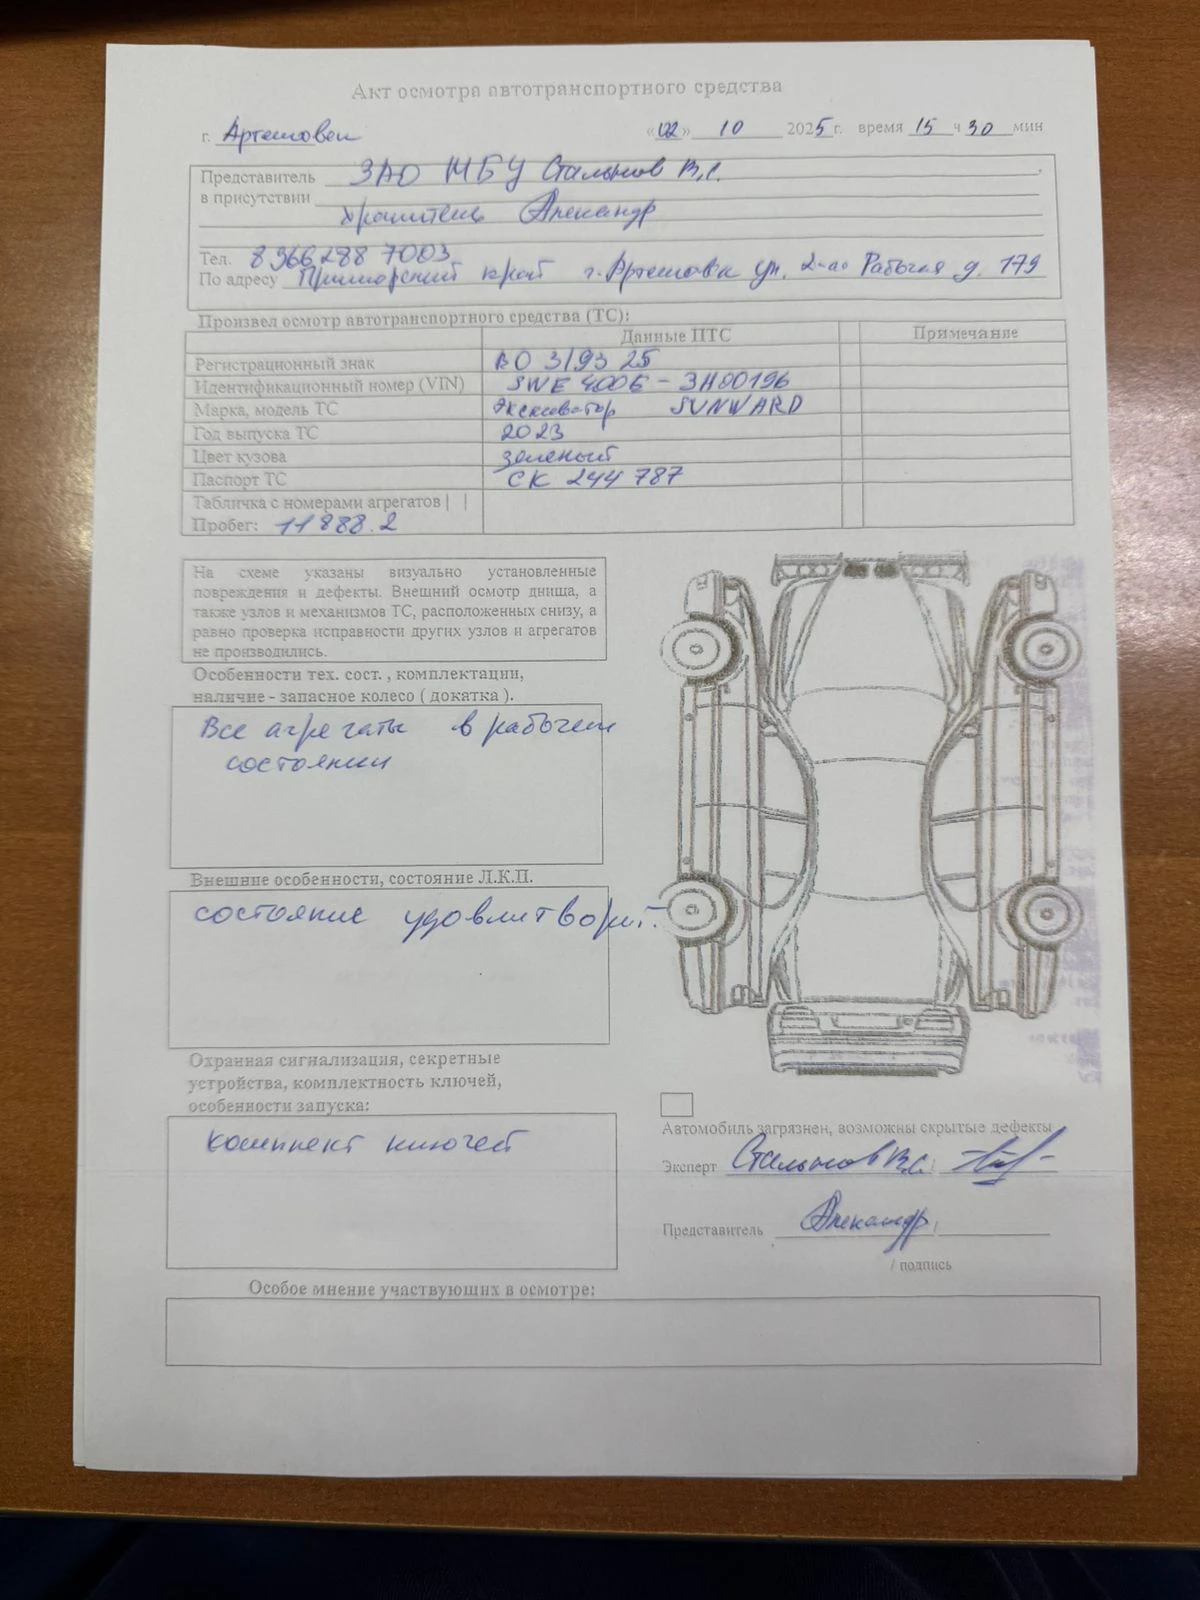 Акт осмотра автотранспортного средства
г. Артемовск «02» 10 2025 г. время 15 ч 30 мин
Представитель ЗАО МБУ Стальнов В.С.
в присутствии
хранитель Александр
Тел. 8 966 288 7003
По адресу Приморский край г. Артемовск ул. 2-ая Рабочая д. 179
Произвел осмотр автотранспортного средства (ТС):
Данные ПТС Примечание
Регистрационный знак ВО 3193 25
Идентификационный номер (VIN) SWE 400E - 3H00196
Марка, модель ТС Экскаватор SUNWARD
Год выпуска ТС 2023
Цвет кузова зеленый
Паспорт ТС СК 244 787
Табличка с номерами агрегатов | |
Пробег: 11888.2
На схеме указаны визуально установленные
повреждения и дефекты. Внешний осмотр днища, а
также узлов и механизмов ТС, расположенных снизу, а
равно проверка исправности других узлов и агрегатов
не производились.
Особенности тех. сост. , комплектации,
наличие - запасное колесо ( докатка ).
Все агрегаты в рабочем
состоянии
Внешние особенности, состояние Л.К.П.
состояние удовлитворит.
Охранная сигнализация, секретные
устройства, комплектность ключей,
особенности запуска:
комплект ключей
Автомобиль загрязнен, возможны скрытые дефекты
Эксперт Стальнов В.С. /
Представитель Александр /
/ подпись
Особое мнение участвующих в осмотре: